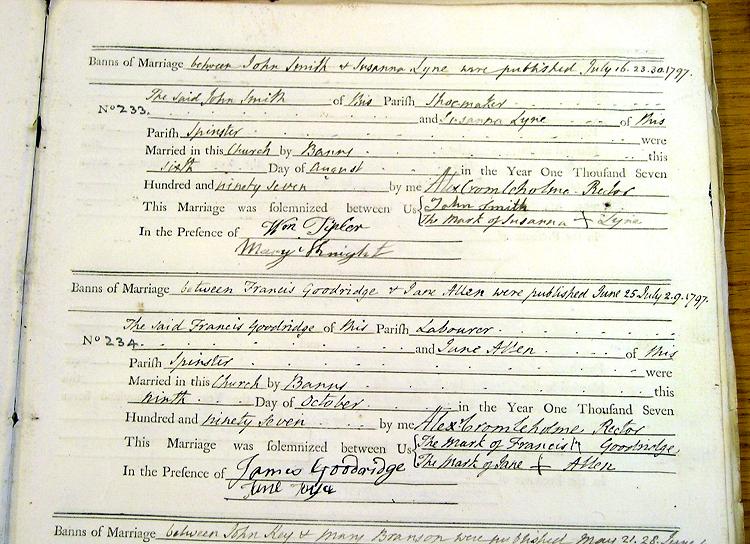 Banns of Marriage between John Smith & Susanna Lyne were published July 16. 23. 30. 1797.
The said John Smith of this Parish Shoemaker
No 233.
and Susanna Lyne of this
Parish Spinster were
Married in this Church by Banns this
sixth Day of August in the Year One Thousand Seven
Hundred and ninety seven by me Alex Cromleholme Rector
This Marriage was solemnized between Us John Smith
The Mark of Susanna + Lyne
In the Presence of Wm Tipler
Mary Knight
Banns of Marriage between Francis Goodridge & Jane Allen were published June 25 July 2. 9. 1797.
The said Francis Goodridge of this Parish Labourer
No 234.
and Jane Allen of this
Parish Spinster were
Married in this Church by Banns this
ninth Day of October in the Year One Thousand Seven
Hundred and ninety seven by me Alex Cromleholme Rector
This Marriage was solemnized between Us The Mark of Francis Goodridge
The Mark of Jane + Allen
In the Presence of James Goodridge
Banns of Marriage between John Key & Mary Branson were published May 21. 28. June